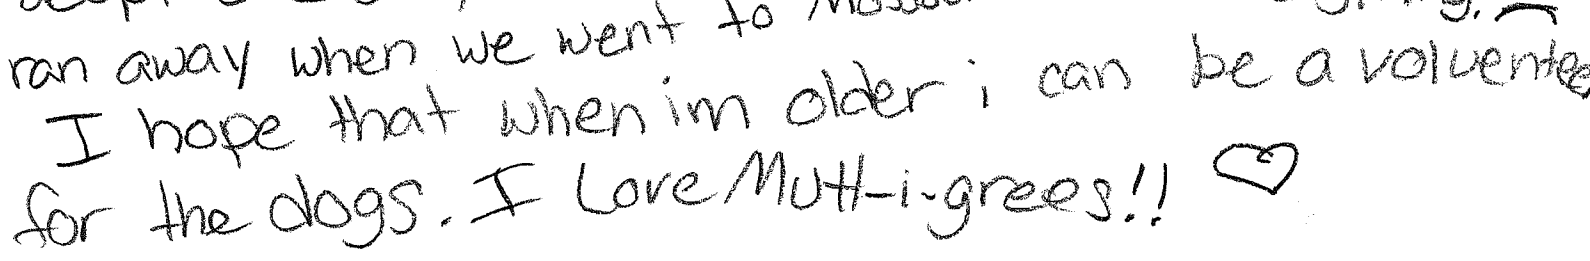 ran away when we went to
I hope that when im older i can be a voluentee
for the dogs. I Love Mutt-i-grees!! ♡